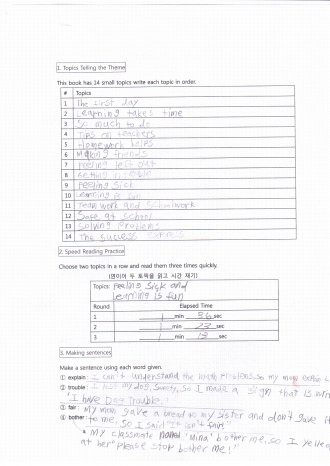 1. Topics Telling the Theme
This book has 14 small topics write each topic in order.
# Topics
1 The first day
2 Learning takes time
3 So much to do
4 Tips on teachers
5 Homework helps
6 Making friends
7 Feeling left out
8 Getting in trouble
9 Feeling sick
10 Learning is fun
11 Teamwork and schoolwork
12 Safe at school
13 Solving problems
14 The success express
2. Speed Reading Practice
Choose two topics in a row and read them three times quickly.
(연이어 두 토픽을 읽고 시간 재기)
Topics: Feeling Sick and
Learning is fun
Round Elapsed Time
1 1 min 36 sec
2 1 min 23 sec
3 1 min 13 sec
3. Making sentences
Make a sentence using each word given.
① explain : I can't understand the math problems, so my mom
② trouble : my dog, so I made a sign that is
"I have Dog Trouble!"
③ fair : My mom gave a bread to my sister and don't gave it
④ bother to me, so I said "It isn't fair"
My classmate "Mina" bother me, so I yelled
at her "please stop bother me!"